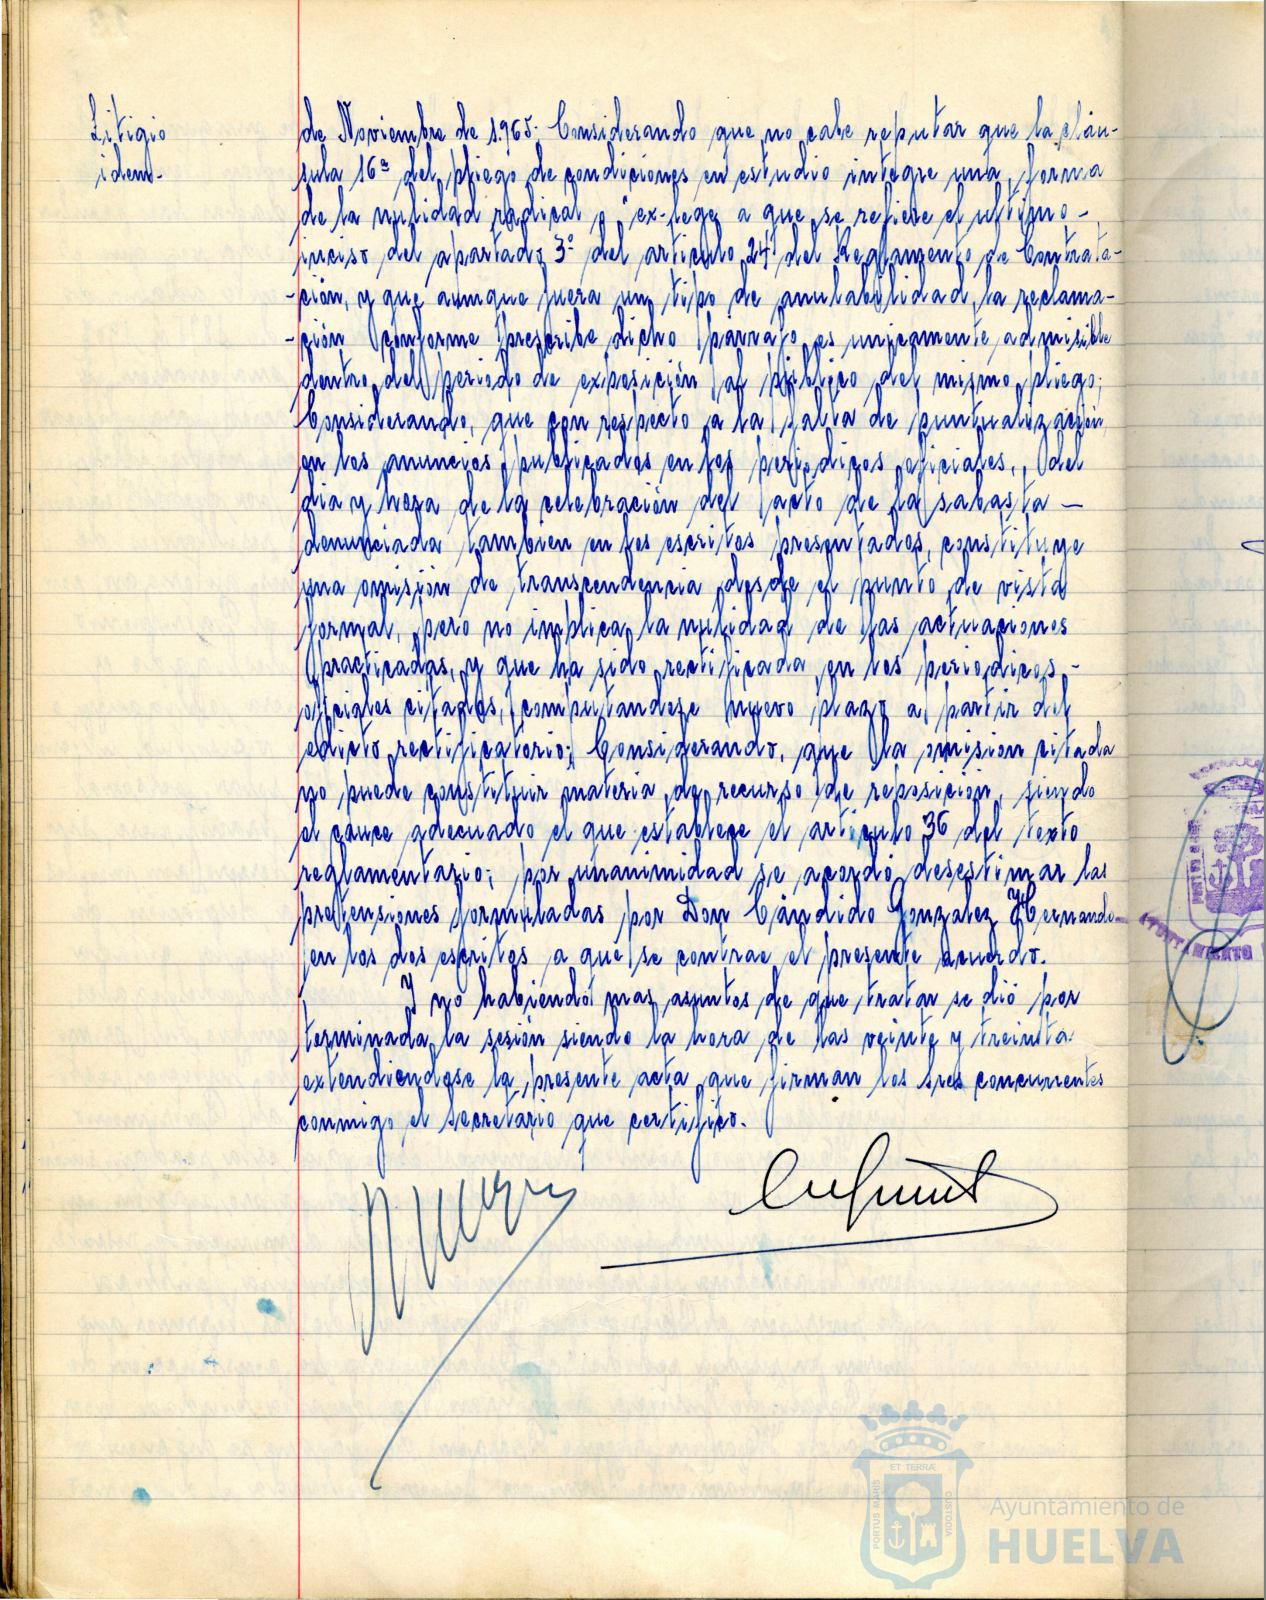 Litigio
idem.
de Noviembre de 1.965; Considerando que no cabe reputar que la cláu-
sula 16ª del pliego de condiciones en estudio integre una forma
de la nulidad radical o "ex-lege a que se refiere el ultimo -
inciso del apartado 3º del articulo 24 del Reglamento de Contrata-
-ción, y que aunque fuera un tipo de anulabilidad, la reclama-
-ción conforme prescribe dicho párrafo es unicamente admisible
dentro del periodo de exposición al público del mismo pliego;
Considerando, que con respecto a la falta de puntualización,
en los anuncios publicados en los periodicos oficiales, del
dia y hora de la celebración del acto de la subasta —
denunciada tambien en los escritos presentados, constituye
una omisión de transcendencia desde el punto de vista
formal, pero no implica la nulidad de las actuaciones
practicadas, y que ha sido rectificada en los periodicos -
oficiales citados, computandose nuevo plazo a partir del
edicto rectificatorio; Considerando, que la omision citada
no puede constituir materia de recurso de reposición, siendo
el cauce adecuado el que establece el articulo 36 del texto
reglamentario; por unanimidad se acordó desestimar las
pretensiones formuladas por Don Cándido Gonzalez Hernando
en los dos escritos a que se contrae el presente acuerdo.
Y no habiendo mas asuntos de que tratar se dió por
terminada la sesión siendo la hora de las veinte y treinta
extendiendose la presente acta que firman los sres concurrentes
conmigo el Secretario que certifico.
AYUNTAMIENTO
ET TERRÆ
PORTUS MARIS
CUSTODIA
Ayuntamiento de
HUELVA